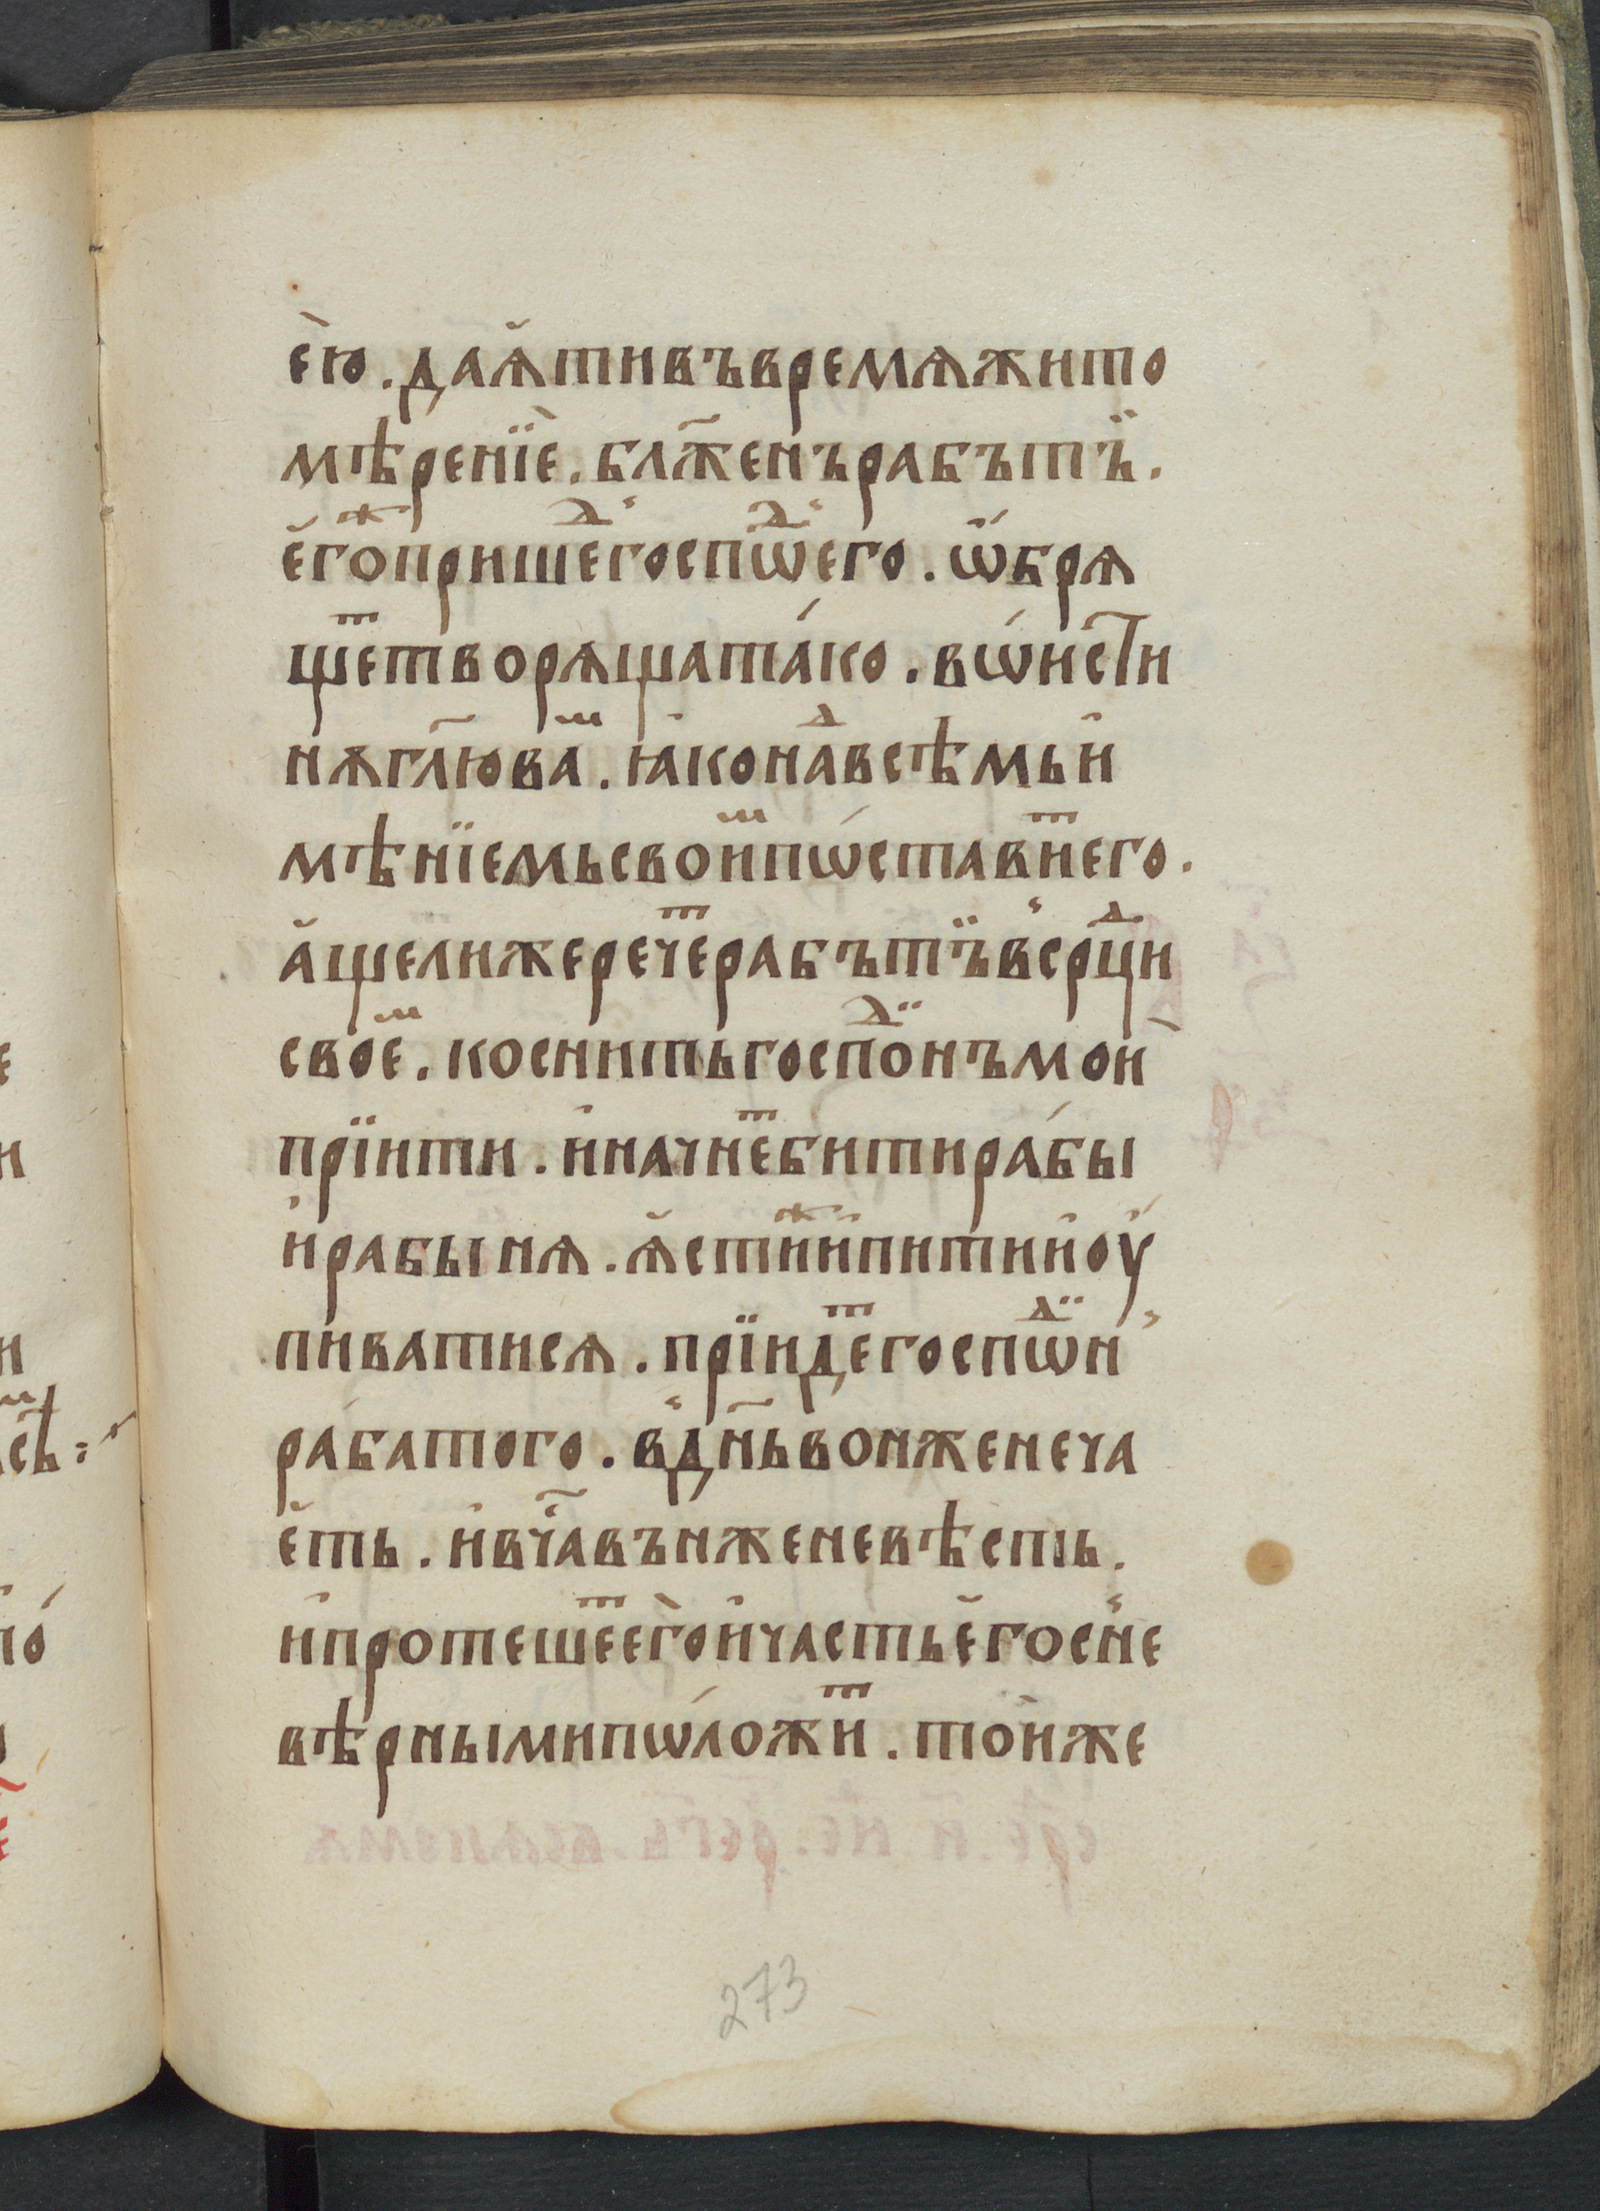 е҆ю̀ . даѧ҆́тивъвремѧжито
мѣренїѐ . бл҃женърабътъ̈ .
е҆́гоⷤпришеⷣ҆госпⷣ҆ѡего . ѡ҆́брѧ
щеⷮтворѧщата́ко . вѡ́и҆сти
нѧгл҃юваⷨ . ꙗ҆конаⷣвсѣмьи҆
мѣнїемьсвоиⷨпѡ́ставиⷮего .
а҆́щелижеречеⷮрабътъ̈в҆серⷣци
своеⷨ . коснитьгоспоⷣ̈нъмои̇̀
прїити . и҆начнеⷮбитира́бы
и҆рабынѧ . ѧ҆́стиⷤи҆питии҆оу҆́
пиватисѧ . прїидеⷮгоспѡⷣ̈н҆
ра́батого . в҆дн҃ьвоньженеча
е҆́ть . и҆вч҃авъньженевѣсть .
и҆протешеⷮего̀и҆частье҆́гос҆не
вѣрнымипѡ́ложиⷮ . то̀иже
273